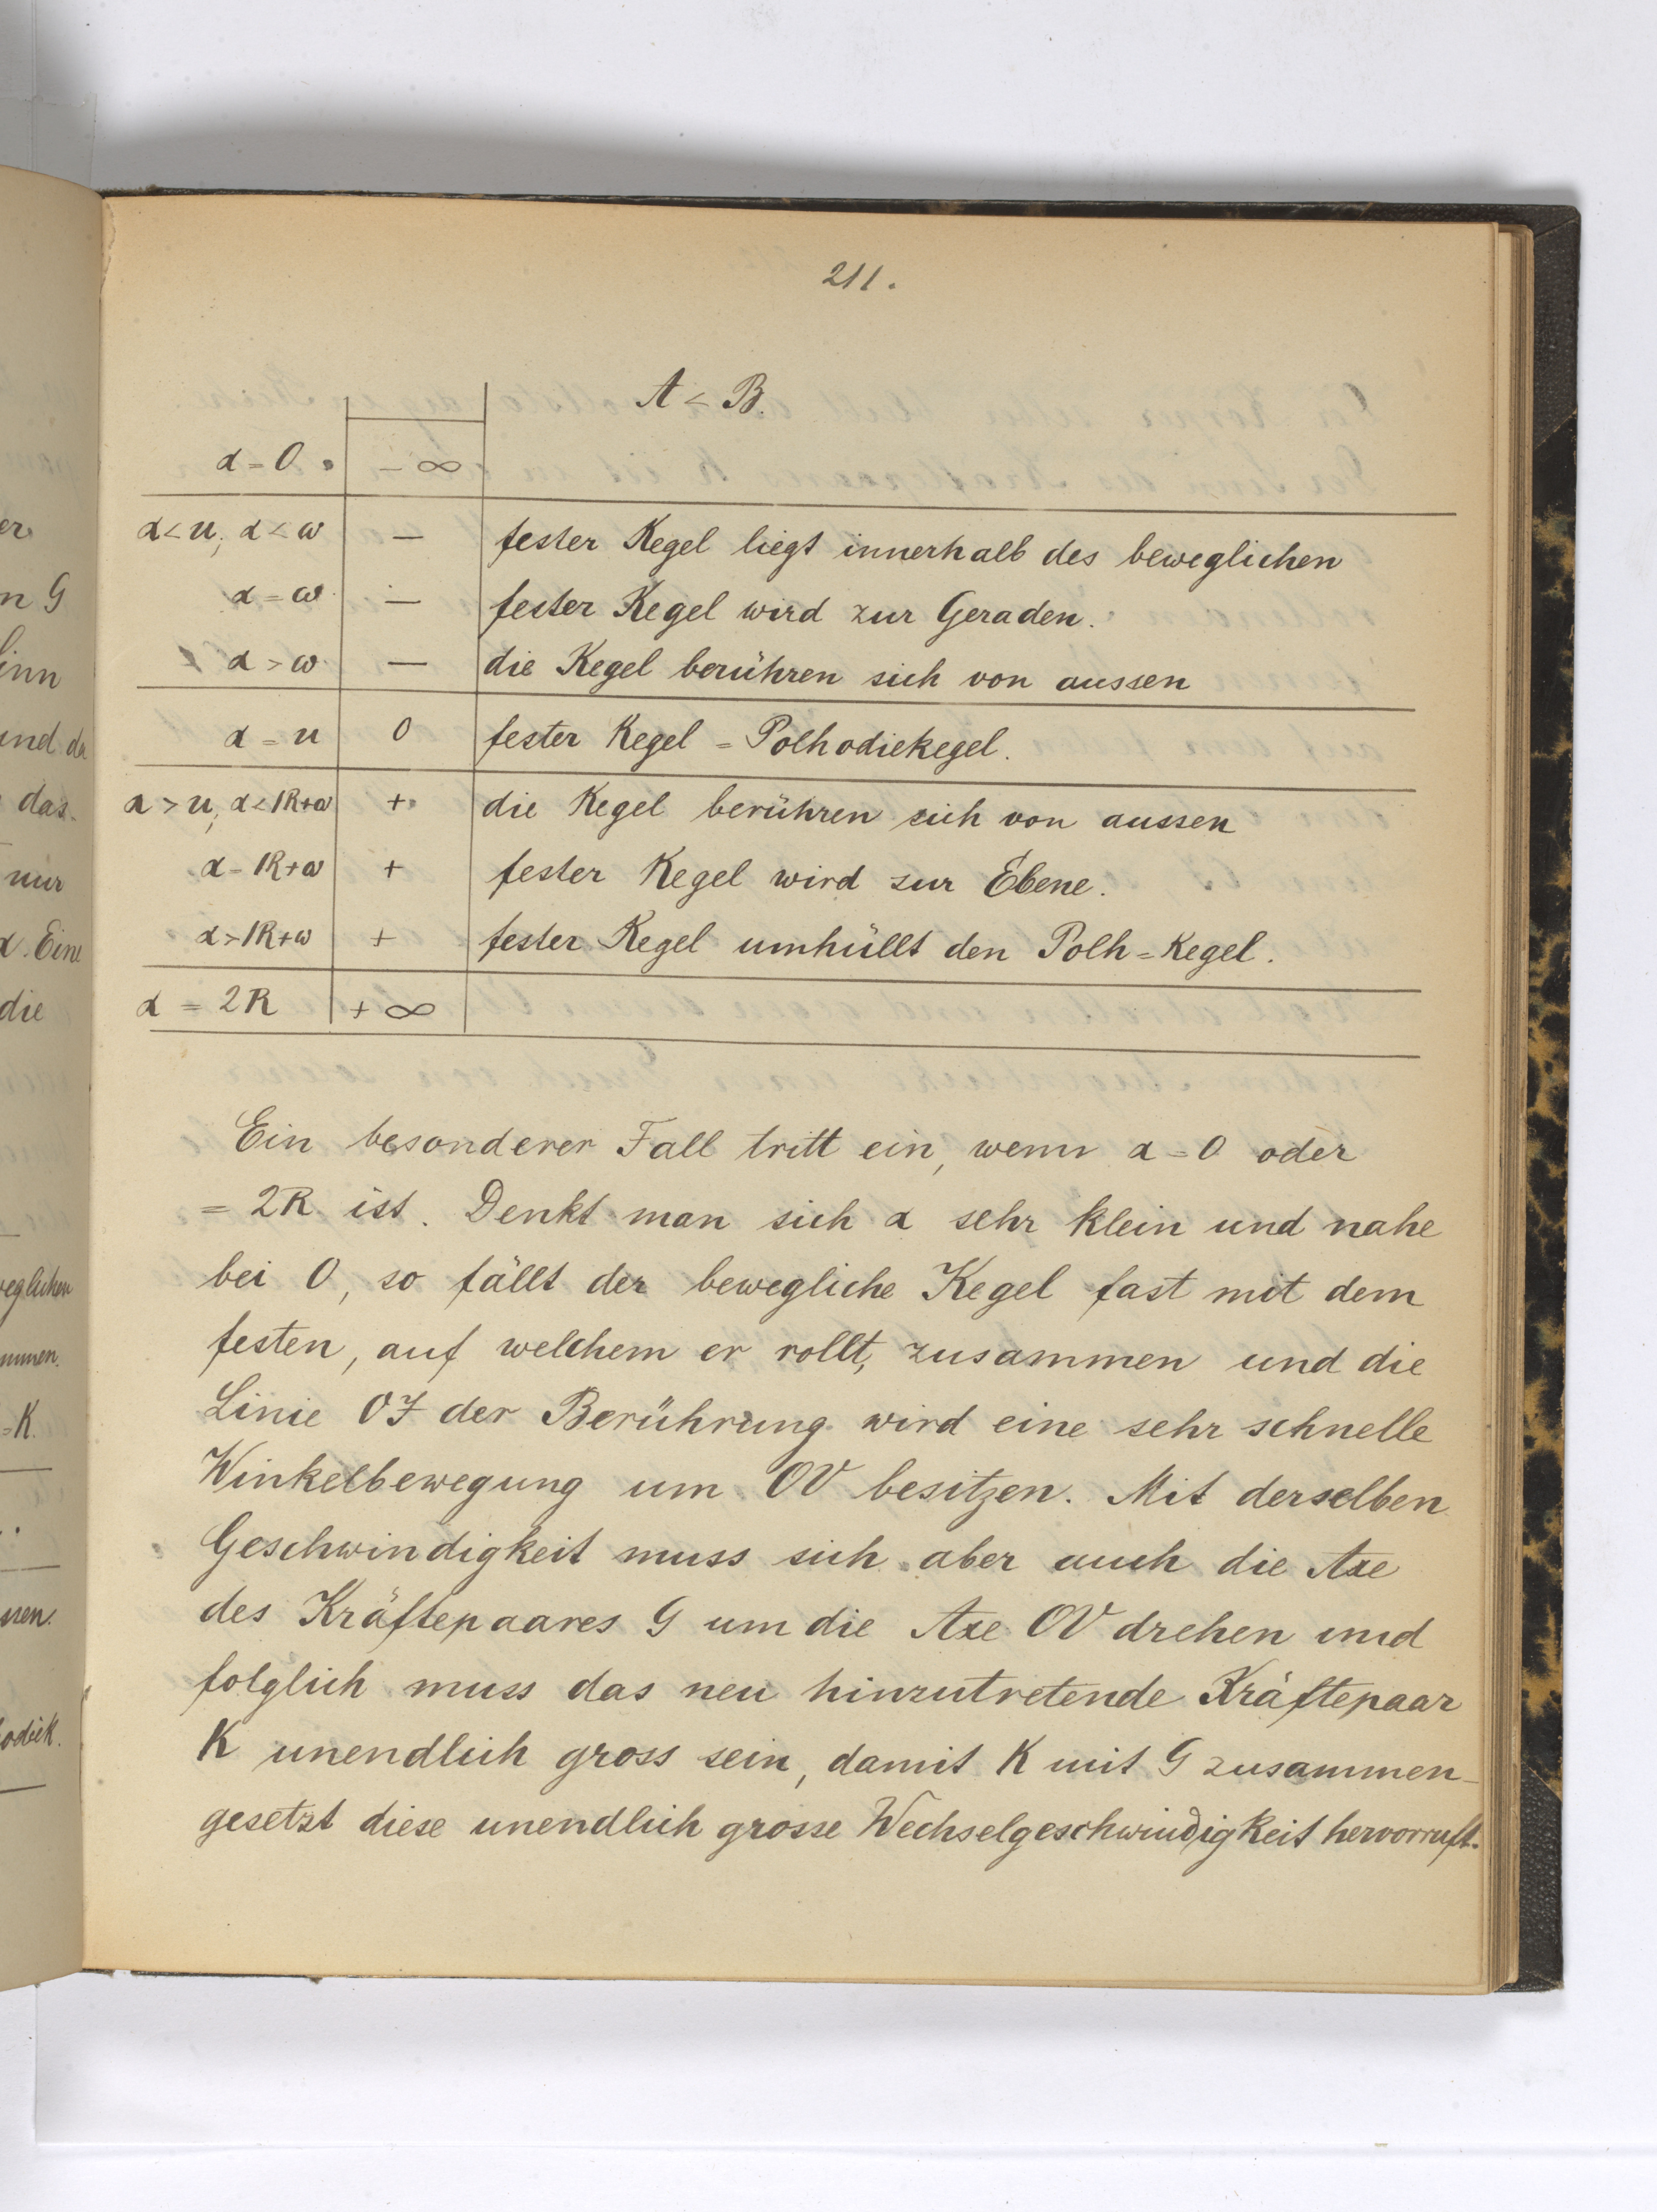 211.
A < B.
α = 0. | - ∞
α < u, α < ω | — | fester Kegel liegt innerhalb des beweglichen
α = ω | — | fester Kegel wird zur Geraden.
α > ω | — | die Kegel berühren sich von aussen
α = u | 0 | fester Kegel = Polhodiekegel.
α > u, α < 1R+ω | + | die Kegel berühren sich von aussen
α = 1R+ω | + | fester Kegel wird zur Ebene.
α > 1R+ω | + | fester Kegel umhüllt den Polh=Kegel.
α = 2R | + ∞
Ein besonderer Fall tritt ein, wenn α = 0 oder
= 2R ist. Denkt man sich α sehr klein und nahe
bei 0, so fällt der bewegliche Kegel fast mit dem
festen, auf welchem er rollt, zusammen und die
Linie OJ der Berührung wird eine sehr schnelle
Winkelbewegung um OV besitzen. Mit derselben
Geschwindigkeit muss sich aber auch die Axe
des Kräftepaares G um die Axe OV drehen und
folglich muss das neu hinzutretende Kräftepaar
K unendlich gross sein, damit K mit G zusammen-
gesetzt diese unendlich grosse Wechselgeschwindigkeit hervorruft.
er
n G
Sinn
und da
das
nur
α. Eine
die
weglichen
mmen.
=K.
ssen.
hodiek.